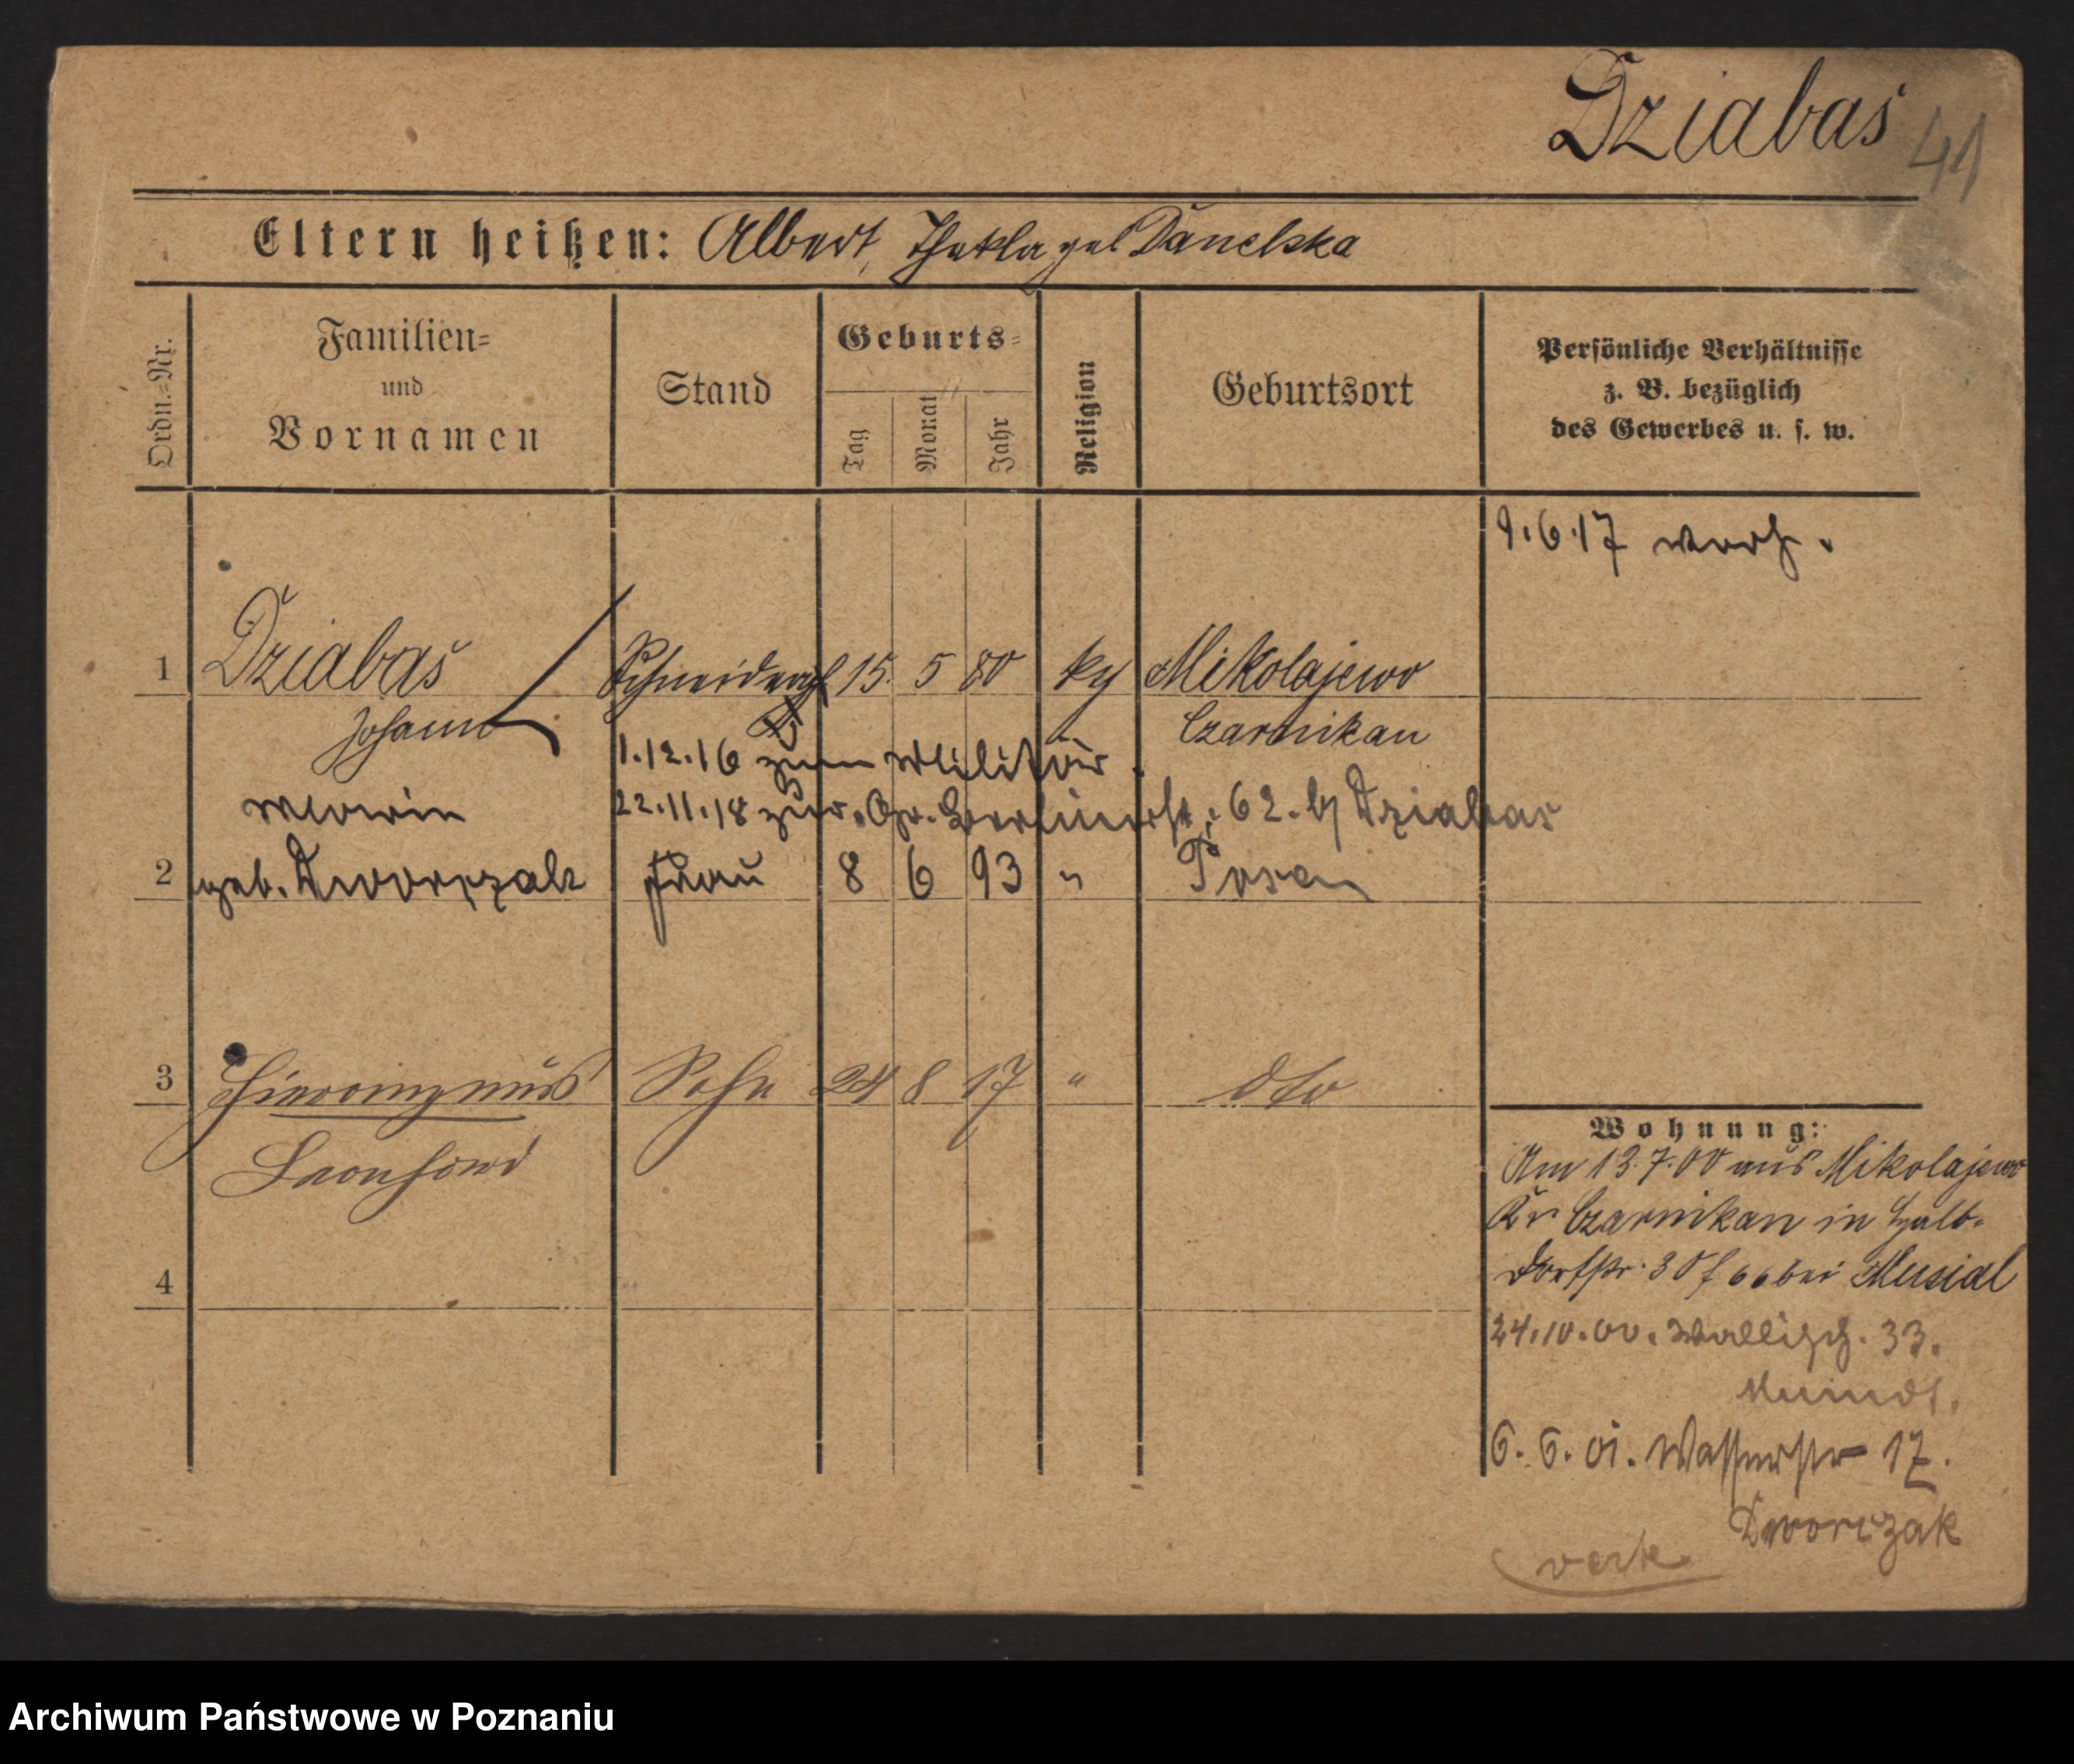 Dziabas 41
Eltern heißen: Albert, Thekla geb Danelska
Ordn.-Nr.
Familien-
und
Vornamen
Stand
Geburts-
Tag
Monat
Jahr
Religion
Geburtsort
Persönliche Verhältnisse
z. B. bezüglich
des Gewerbes u. s. w.
9.6.17 verh.
1 Dziabas 15. 5 80 Mikolajewo
Johann Czarnikau
1.12.16 zum Militär.
22.11.18 zur. Gr. Berlinerstr. 62. b/ Dziabas
2 geb. Dworczak Frau 8 6 93 " Posen
3 Hieronymus Sohn 24 8 17 " dto
Leonhard
4
Wohnung:
Am 13.7.00 aus Mikolajewo
Kr Czarnikau in Halb-
dorfstr. 30 bei Musial
24.10.00. Wallisch. 33.
6. 6. 01. Wasserstr 17.
Dworczak
verte
Archiwum Państwowe w Poznaniu